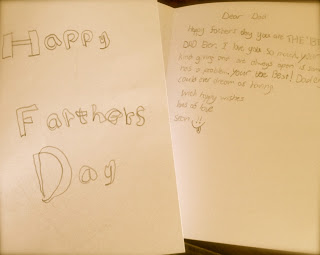 Happy
Farthers
Day
Dear Dad
Happy farthers day you are THE BE
DAD Ever. I love you so much, your
kind giving and are always open
not a problem. your the Best! Dad
could ever dream of having
best happy wishes
lots of love